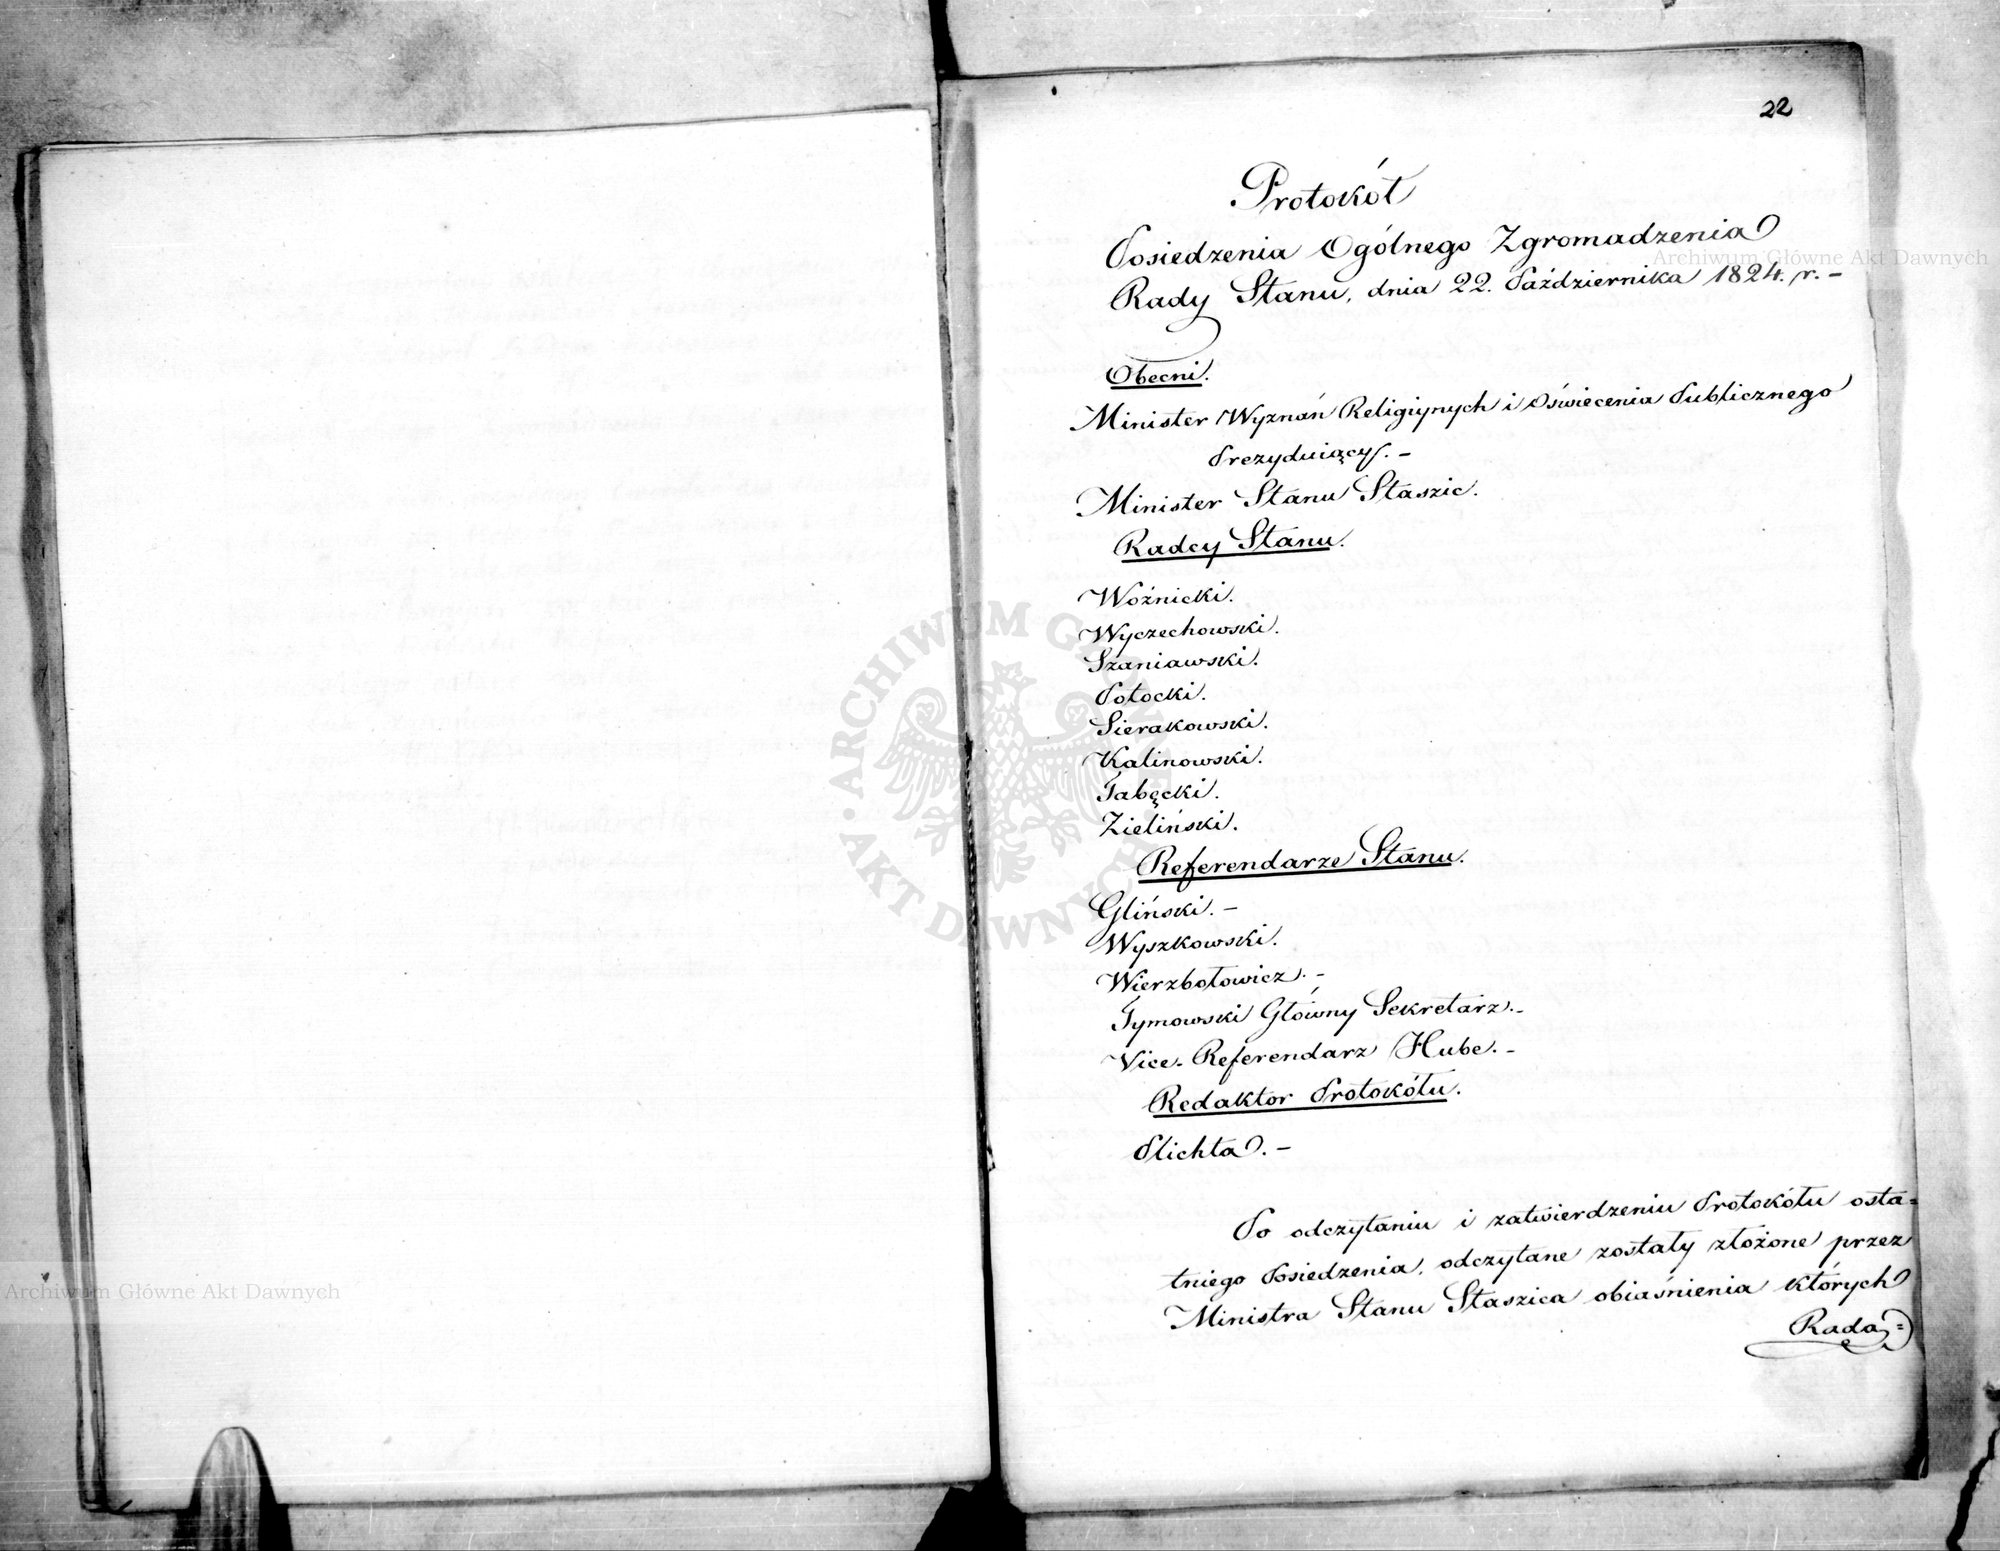 22
Protokół
Posiedzenia Ogólnego Zgromadzenia
Rady Stanu, dnia 22. Października 1824. r. -
Obecni.
Minister Wyznań Religiynych i Oświecenia Publicznego
Prezyduiący. -
Minister Stanu Staszic.
Radcy Stanu.
Woźnicki.
Wyczechowski.
Szaniawski.
Potocki.
Sierakowski.
Kalinowski.
Tabęcki.
Zieliński.
Referendarze Stanu.
Gliński. -
Wyszkowski.
Wierzbołowicz. -
Tymowski Główny Sekretarz. -
Vice-Referendarz Hube. -
Redaktor Protokółu.
Plichta. -
Po odczytaniu i zatwierdzeniu Protokółu osta=
tniego Posiedzenia, odczytane zostały złożone przez
Ministra Stanu Staszica obiaśnienia których
Rada =
Archiwum Główne Akt Dawnych
Archiwum Główne Akt Dawnych
ARCHIWUM GŁÓWNE AKT DAWNYCH